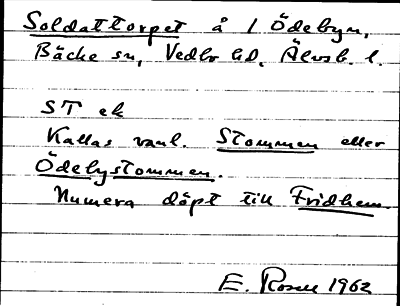 Soldattorpet å 1 Ödebyn,
Bäcke sn, Vedbo hd, Älvsb. l.
ST ek
Kallas vanl. Stommen eller
Ödebystommen.
Numera döpt till Fridhem.
E. Rosen 1962